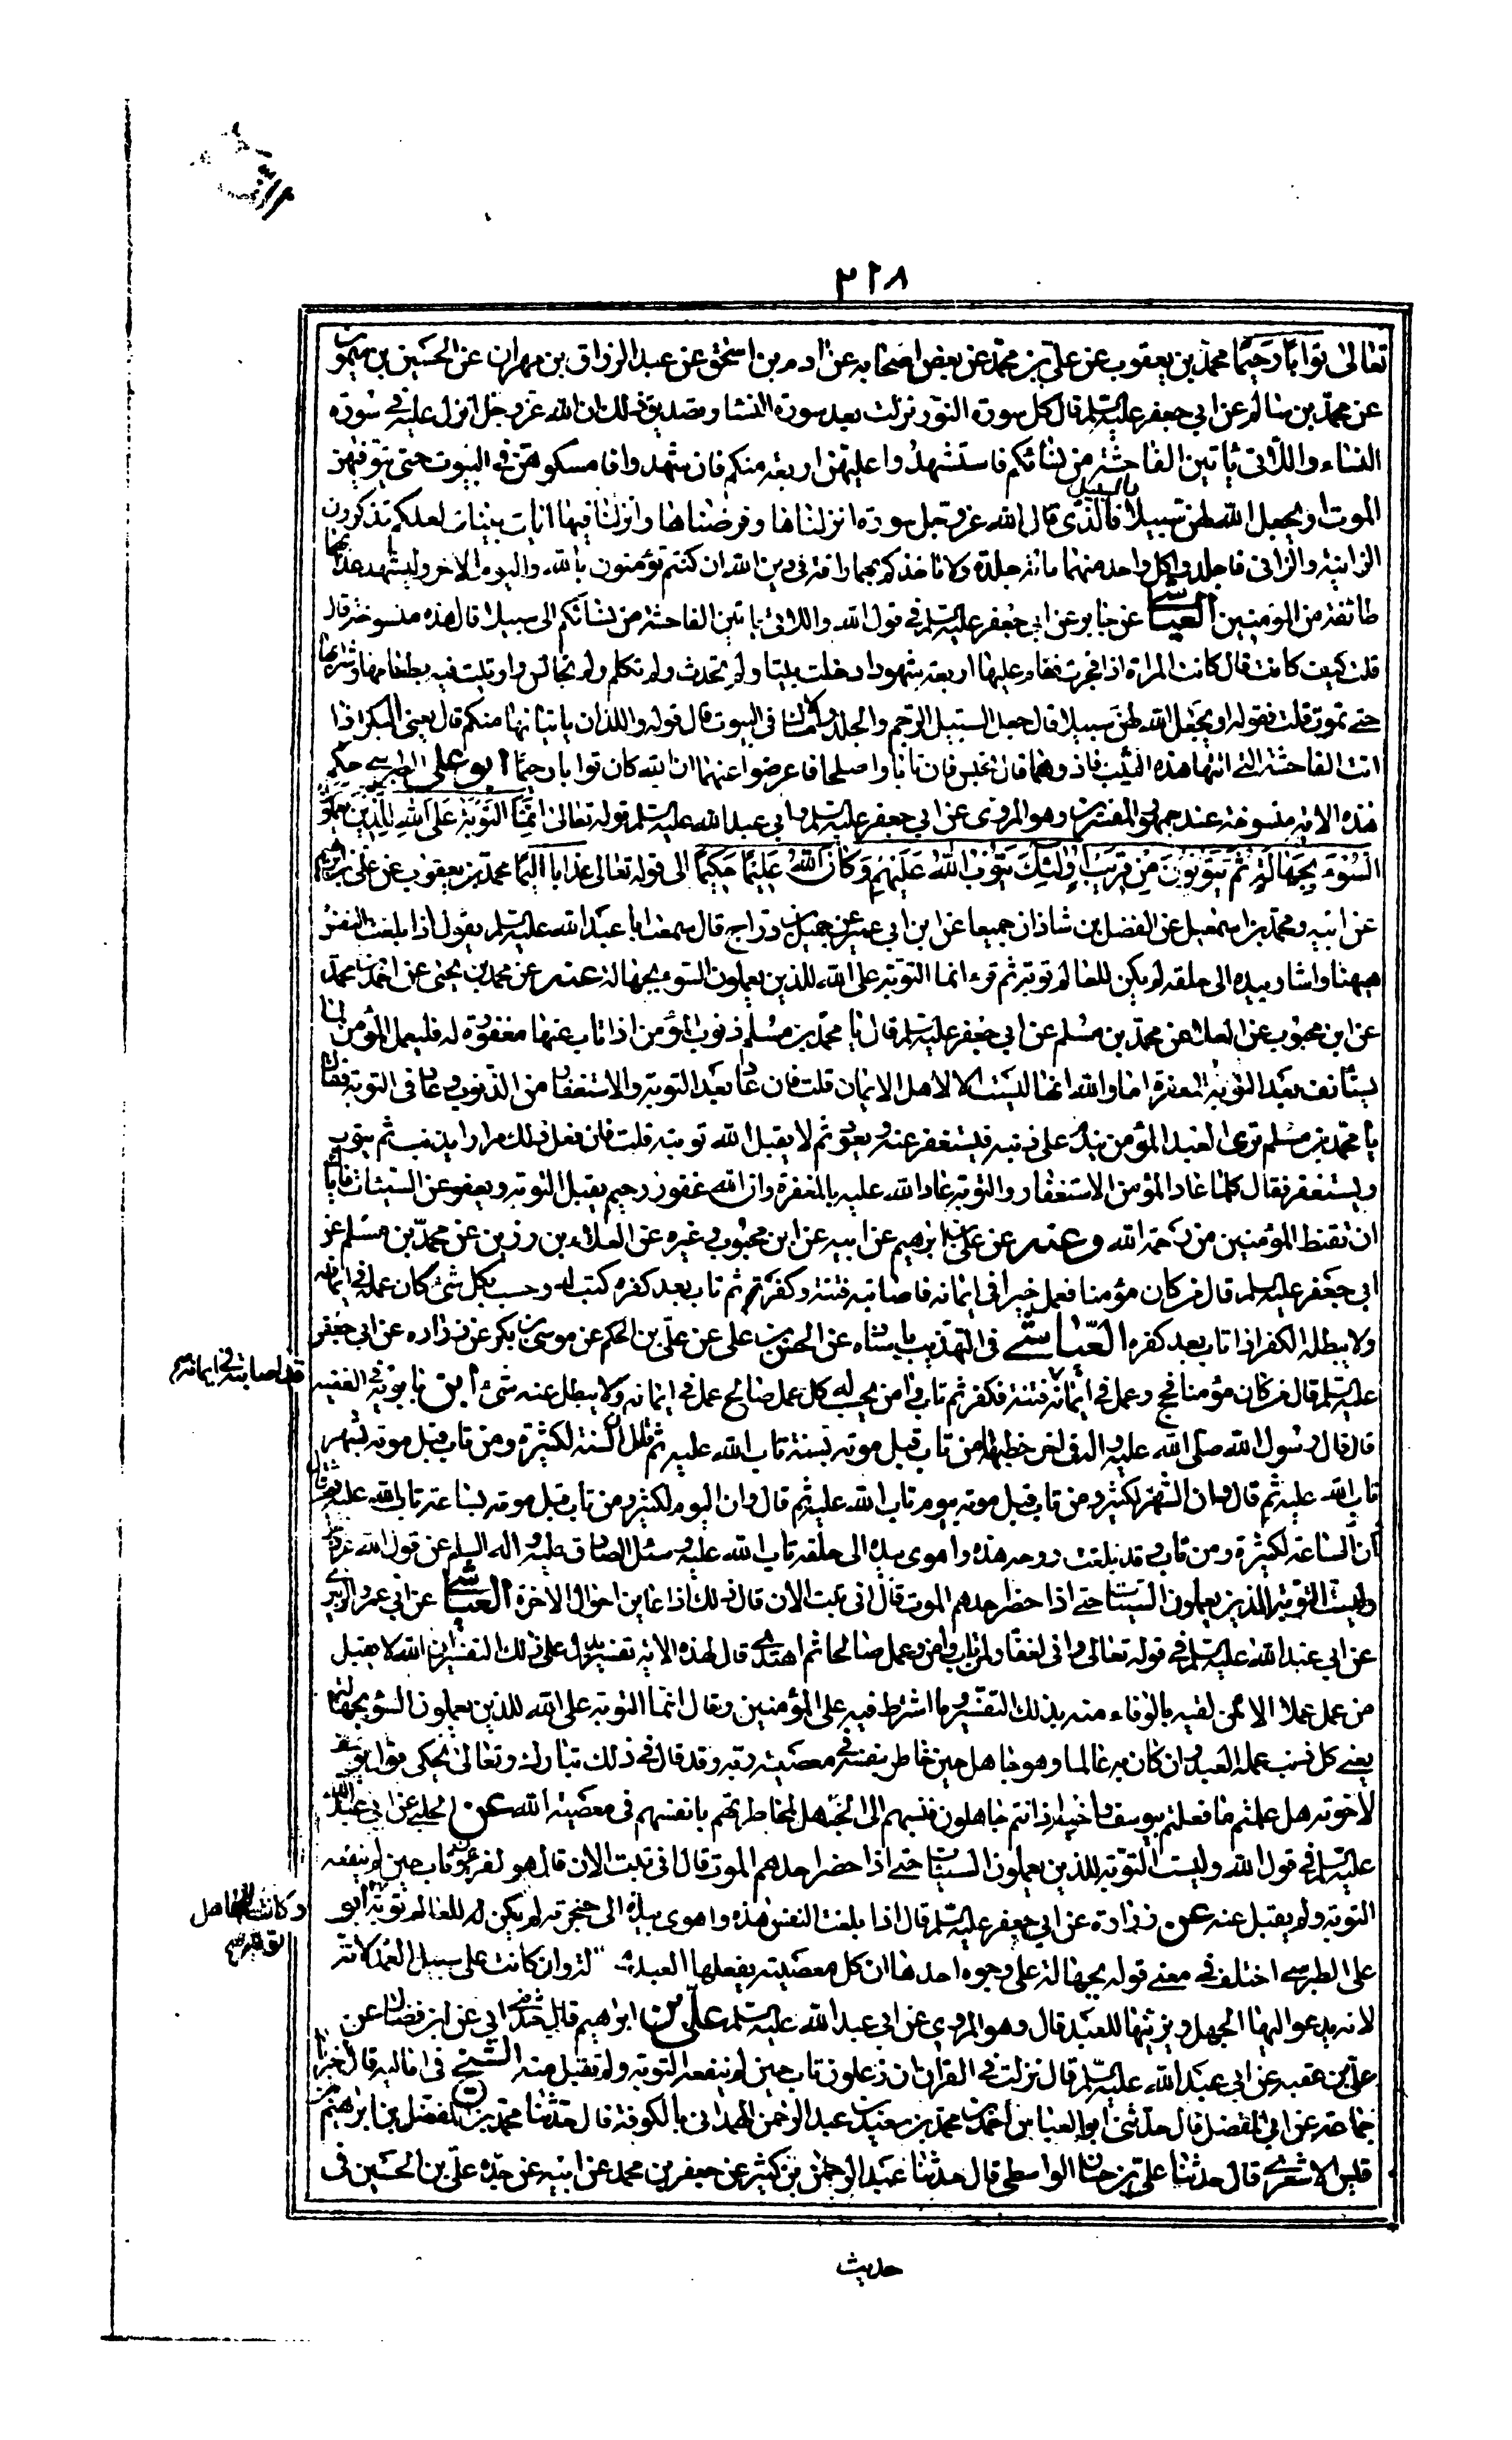 ٢٢٨
تعالى توابا رحيما محمد بن يعقوب عن علي بن محمد عن بعض اصحابه عن ادم بن اسحق عن عبد الرزاق بن مهران عن الحسين بن ميمون
عن محمد بن سالم عن ابي جعفر عليه السلم قال كل سورة النور نزلت بعد سورة النساء و تصديق ذلك ان الله عز و جل انزل عليه في سورة
النساء و اللاتي ياتين الفاحشة من نسائكم فاستشهدوا عليهن اربعة منكم فان شهدوا فامسكوهن في البيوت حتى يتوفيهن
الموت او يجعل الله لهن سبيلا فالسبيل الذي قال الله عز و جل سورة انزلناها و فرضناها و انزلنا فيها ايات بينات لعلكم تذكرون
الزانية و الزاني فاجلدوا كل واحد منهما مائة جلدة ولا تاخذكم بهما رافة في دين الله ان كنتم تؤمنون بالله و اليوم الاخر و ليشهد عذابهما
طائفة من المؤمنين العياشي عن جابر عن ابي جعفر عليه السلم في قول الله و اللاتي ياتين الفاحشة من نسائكم الى سبيلا قال هذه منسوخة قال
قلت كيف كانت قال كانت المراة اذا فجرت فقام عليها اربعة شهود ادخلت بيتا و لم تحدث و لم تكلم و لم تجالس و اوتيت فيه بطعامها و شرابها
حتى تموت قلت فقوله او يجعل الله لهن سبيلا قال جعل السبيل الرجم و الجلد و الامساك في البيوت قال قوله و اللذان ياتيانها منكم قال يعني البكر اذا
اتت الفاحشة التي اتتها هذه الثيب فاذوهما قال تحبس فان تابا و اصلحا فاعرضوا عنهما ان الله كان توابا رحيما ابو علي الطبرسي حكم
هذه الاية منسوخة عند جمهور المفسرين و هو المروي عن ابي جعفر عليه السلم و ابي عبد الله عليه السلم قوله تعالى انما التوبة على الله للذين يعملون
السوء بجهالة ثم يتوبون من قريب اولئك يتوب الله عليهم و كان الله عليما حكيما الى قوله تعالى عذابا اليما محمد بن يعقوب عن علي بن ابرهيم
عن ابيه و محمد بن اسمعيل عن الفضل بن شاذان جميعا عن ابن ابي عمير عن جميل بن دراج قال سمعت ابا عبد الله عليه السلم يقول اذا بلغت النفس
هيهنا و اشار بيده الى حلقه لم يكن للعالم توبة ثم قرء انما التوبة على الله للذين يعملون السوء بجهالة عنه عن محمد بن يحيى عن احمد بن محمد
عن ابن محبوب عن العلاء عن محمد بن مسلم عن ابي جعفر عليه السلم قال يا محمد بن مسلم ذنوب المؤمن اذا تاب عنها مغفورة له فليعمل المؤمن لما
يستانف بعد التوبة و المغفرة اما و الله انها ليست الا لاهل الايمان قلت فان عاد بعد التوبة و الاستغفار من الذنوب و عاد في التوبة فقال
يا محمد بن مسلم ترى العبد المؤمن يندم على ذنبه فيستغفر عنه و يعود ثم لا يقبل الله توبته قلت فان فعل ذلك مرارا يذنب ثم يتوب
و يستغفر فقال كلما عاد المؤمن الاستغفار و التوبة عاد الله عليه بالمغفرة و ان الله غفور رحيم يقبل التوبة و يعفو عن السيئات فاياك
ان تقنط المؤمنين من رحمة الله و عنه عن علي بن ابرهيم عن ابيه عن ابن محبوب و غيره عن العلاء بن رزين عن محمد بن مسلم عن
ابي جعفر عليه السلم قال من كان مؤمنا فعمل خيرا في ايمانه فاصابته فتنة و كفر ثم تاب بعد كفره كتب له و حسب بكل شيء كان عمله في ايمانه
ولا يبطله الكفر اذا تاب بعد كفره العياشي في التهذيب باسناده عن الحسين بن علي عن علي بن الحكم عن موسى بن بكر عن زرارة عن ابي جعفر
عليه السلم قال من كان مؤمنا فحج و عمل في ايمانه فتنة فكفر ثم تاب و امن يحسب له كل عمل صالح عمل في ايمانه و لا يبطل عنه شيء ابن بابويه في الفقيه
قد اصابته في ايمانه
قال قال رسول الله صلى الله عليه و اله في اخر خطبتها من تاب قبل موته بسنة تاب الله عليه ثم قال ان السنة لكثيرة و من تاب قبل موته بشهر
تاب الله عليه ثم قال و ان الشهر لكثير و من تاب قبل موته بيوم تاب الله عليه ثم قال و ان اليوم لكثير و من تاب قبل موته بساعة تاب الله عليه ثم قال
ان الساعة لكثيرة و من تاب و قد بلغت روحه هذه و اهوى بيده الى حلقه تاب الله عليه و سئل الصادق عليه و اله السلم عن قول الله عز و جل
و ليست التوبة للذين يعملون السيئات حتى اذا حضر احدهم الموت قال اني تبت الان قال ذلك اذا عاين احوال الاخرة العياشي عن ابي عمرو الزبيري
عن ابي عبد الله عليه السلم في قوله تعالى و اني لغفار لمن تاب و امن و عمل صالحا ثم اهتدى قال لهذه الاية تفسير يدل على ذلك التفسير ان الله لا يقبل
من عمل عملا الا ممن لقيه بالوفاء منه بذلك التفسير و ما اشترط فيه على المؤمنين و قال انما التوبة على الله للذين يعملون السوء بجهالة
يعني كل ذنب عمله العبد و ان كان به عالما و هو جاهل حين خاطر بنفسه في معصية ربه و قد قال في ذلك تبارك و تعالى يحكي قول يوسف
لاخوته هل علمتم ما فعلتم بيوسف و اخيه اذ انتم جاهلون فنسبهم الى الجهل لمخاطرتهم بانفسهم في معصية الله عن الحلبي عن ابي عبد الله
عليه السلم في قول الله و ليست التوبة للذين يعملون السيئات حتى اذا حضر احدهم الموت قال اني تبت الان قال هو لفرعون تاب حين لم ينفعه
التوبة و لم يقبل عنه عن زرارة عن ابي جعفر عليه السلم قال اذا بلغت النفس هذه و اهوى بيده الى حنجرته لم يكن له للعالم توبة ابو
و كانت للجاهل
توبة
علي الطبرسي اختلف في معنى قوله بجهالة على وجوه احدها ان كل معصية يفعلها العبد و ان كانت على سبيل العمد
لانه يدعو اليها الجهل و يزينها للعبد قال و هو المروي عن ابي عبد الله عليه السلم علي بن ابراهيم قال حدثني ابي عن ابن فضال عن
علي بن عقبة عن ابي عبد الله عليه السلم قال نزلت في القران ان زعلون تاب حين لم ينفعه التوبة و لم تقبل منه الشيخ في اماليه قال اخبرنا
جماعة عن ابي المفضل قال حدثني ابو العباس احمد بن محمد بن سعيد بن عبد الرحمن الهمداني بالكوفة قال حدثنا محمد بن المفضل بن ابرهيم بن
قيس الاشعري قال حدثنا علي بن حسان الواسطي قال حدثنا عبد الرحمن بن كثير عن جعفر بن محمد عن ابيه عن جده علي بن الحسين في
حديث